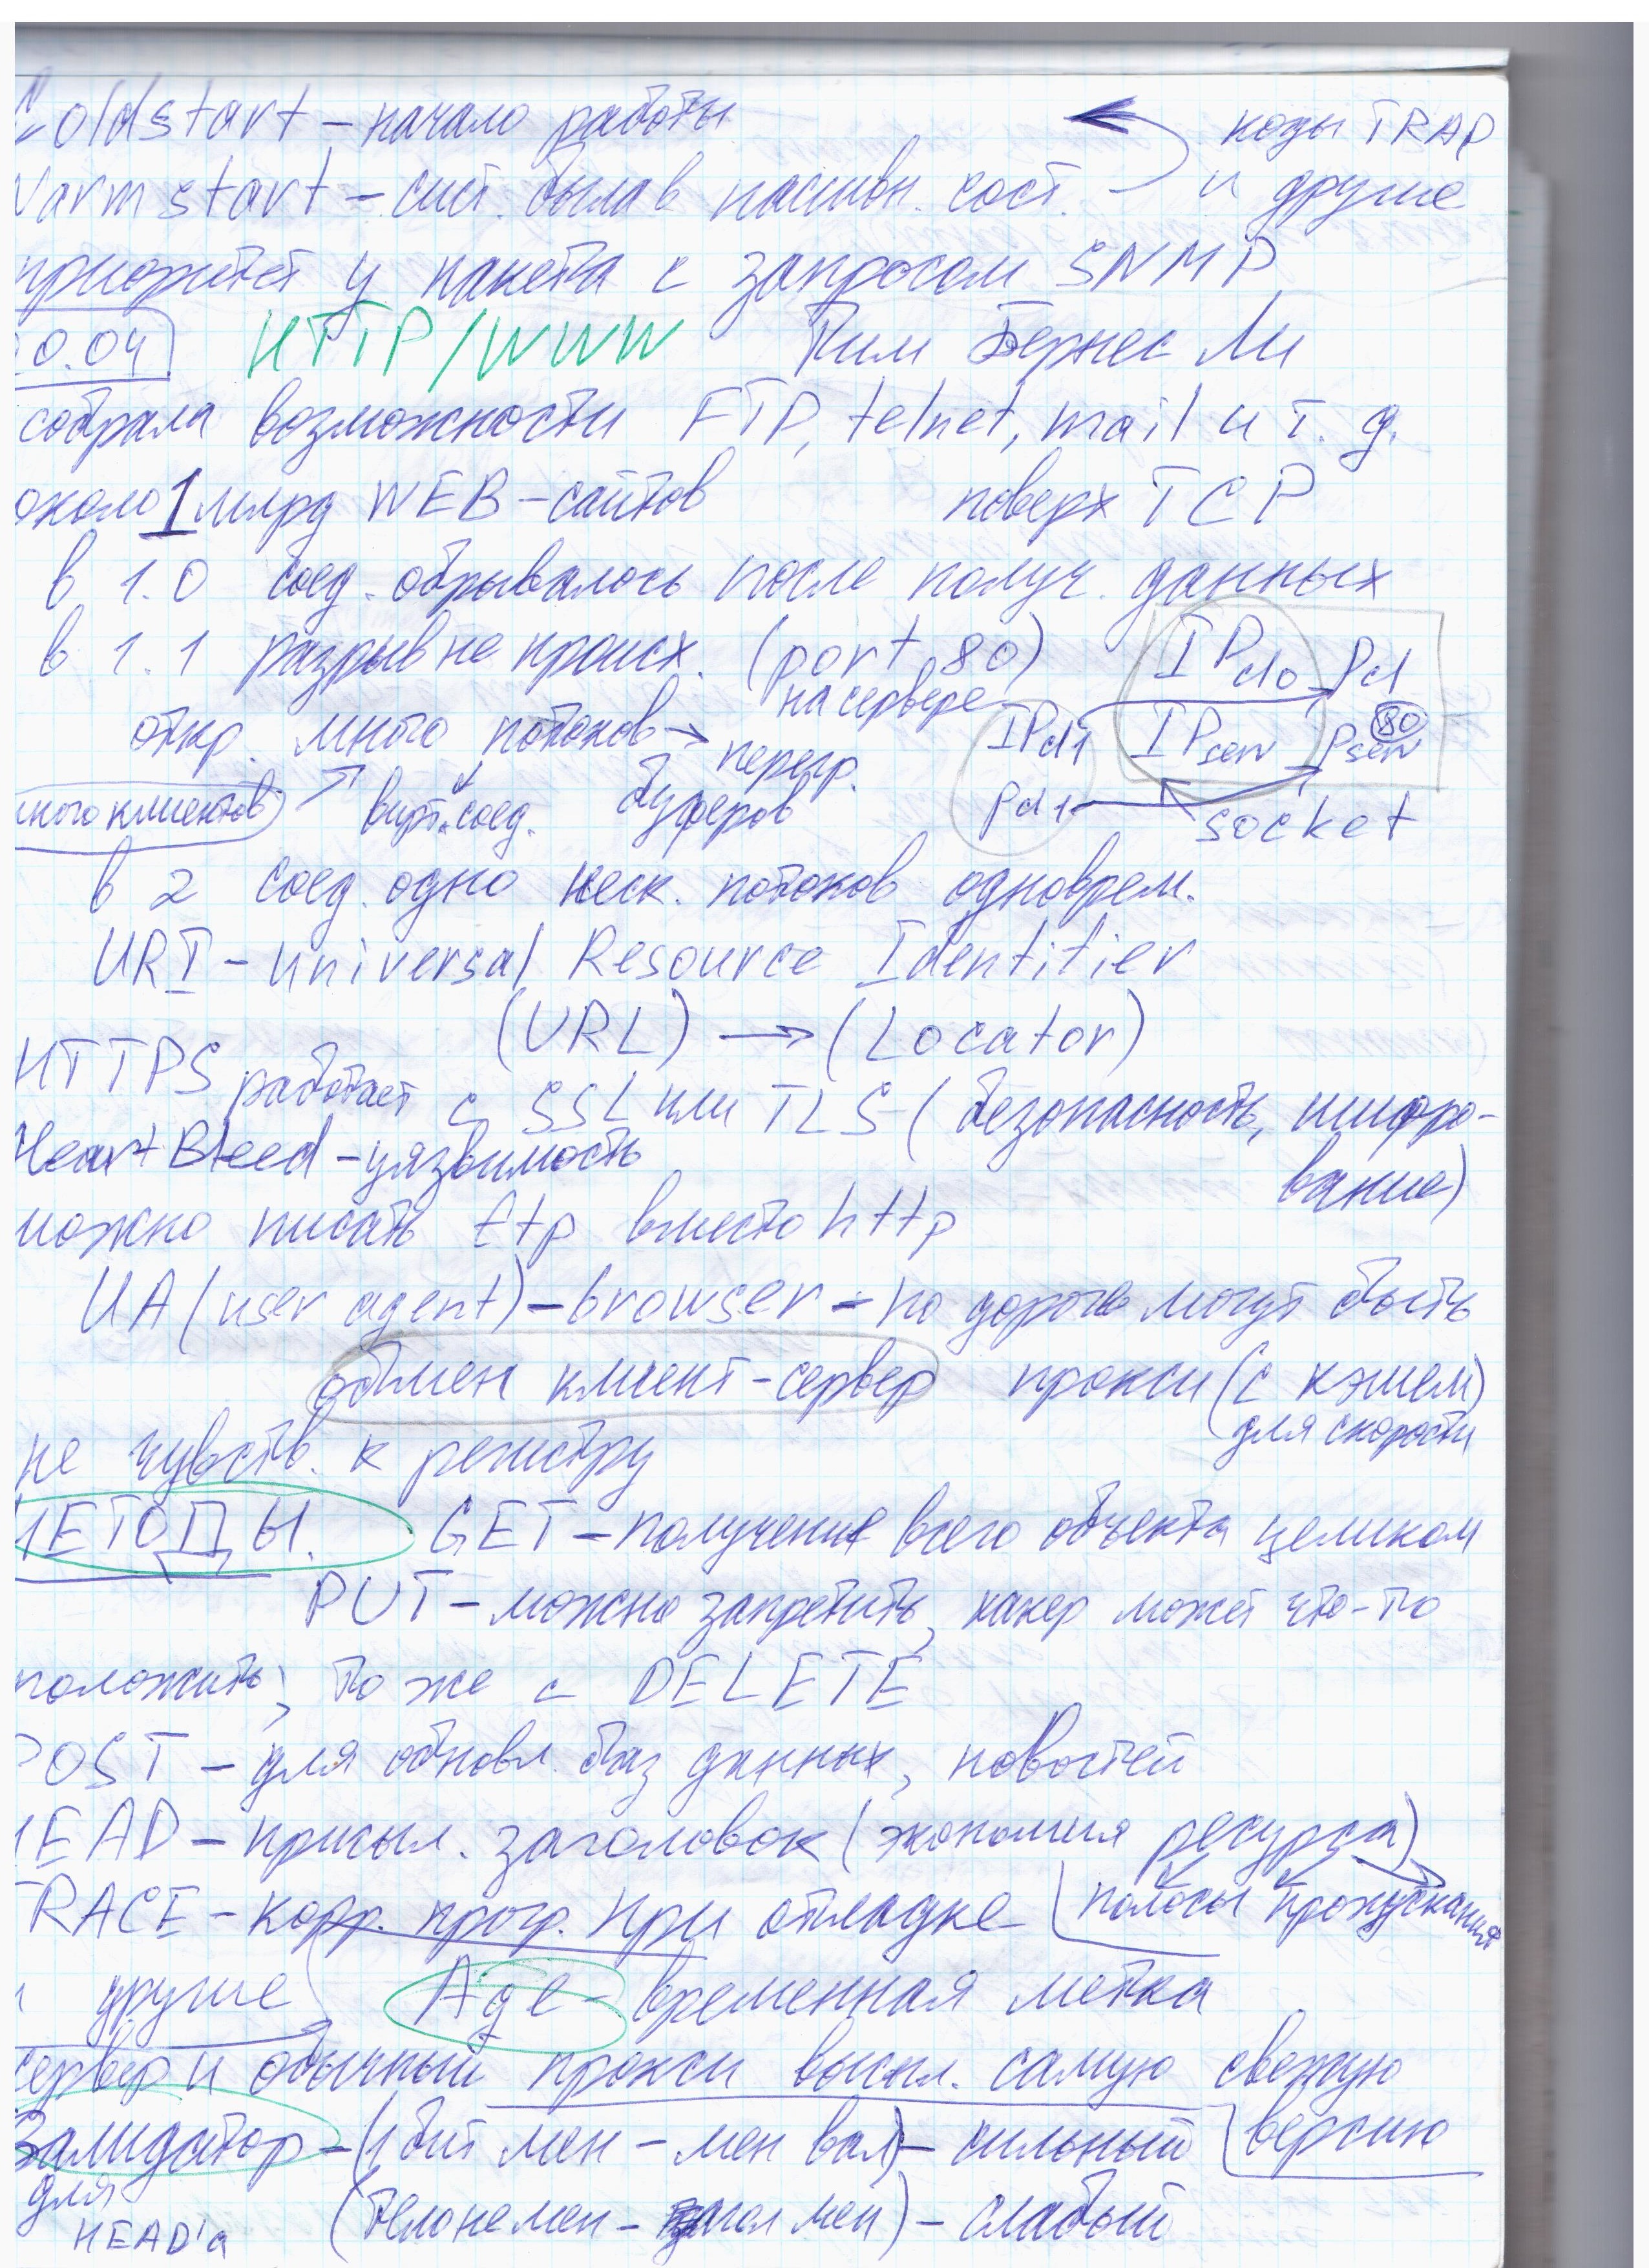 Coldstart – начало работы коды TRAP
Warmstart – сист. была в пассивн. сост. и другие
приоритет у пакета с запросом SNMP
20.04 HTTP/WWW Тим Бернес Ли
собрала возможности FTP, telnet, mail и т. д.
около 1 млрд WEB-сайтов поверх TCP
в 1.0 соед. обрывалось после получ. данных
в 1.1 разрыв не происх. (port 80) IPcl0 Pcl
на сервере
откр. много потоков → перегр. буферов IPcl1 IPserv Pserv 80
много клиентов вирт. соед. Pcl1 socket
в 2 соед. одно неск. потоков одноврем.
URI – Universal Resource Identifier
(URL) → (Locator)
HTTPS работает с SSL или TLS (безопасность, шифро-
HeartBleed – уязвимость вание)
можно писать ftp вместо http
UA (user agent) – browser – по дороге могут быть
обмен клиент-сервер прокси (с кэшем)
для скорости
не чувств. к регистру
МЕТОДЫ. GET – получение всего объекта целиком
PUT – можно запретить, хакер может что-то
положить; то же с DELETE
POST – для обновл. баз данных, новостей
HEAD – присыл. заголовок (экономия ресурса)
TRACE – корр. прогр. при отладке полосы пропускания
и другие Age – временная метка
сервер и обычный прокси высыл. самую свежую
Валидатор – (1 бит мен – мен вал) – сильный версию
для HEAD'а (тело не мен – загол мен) – слабый